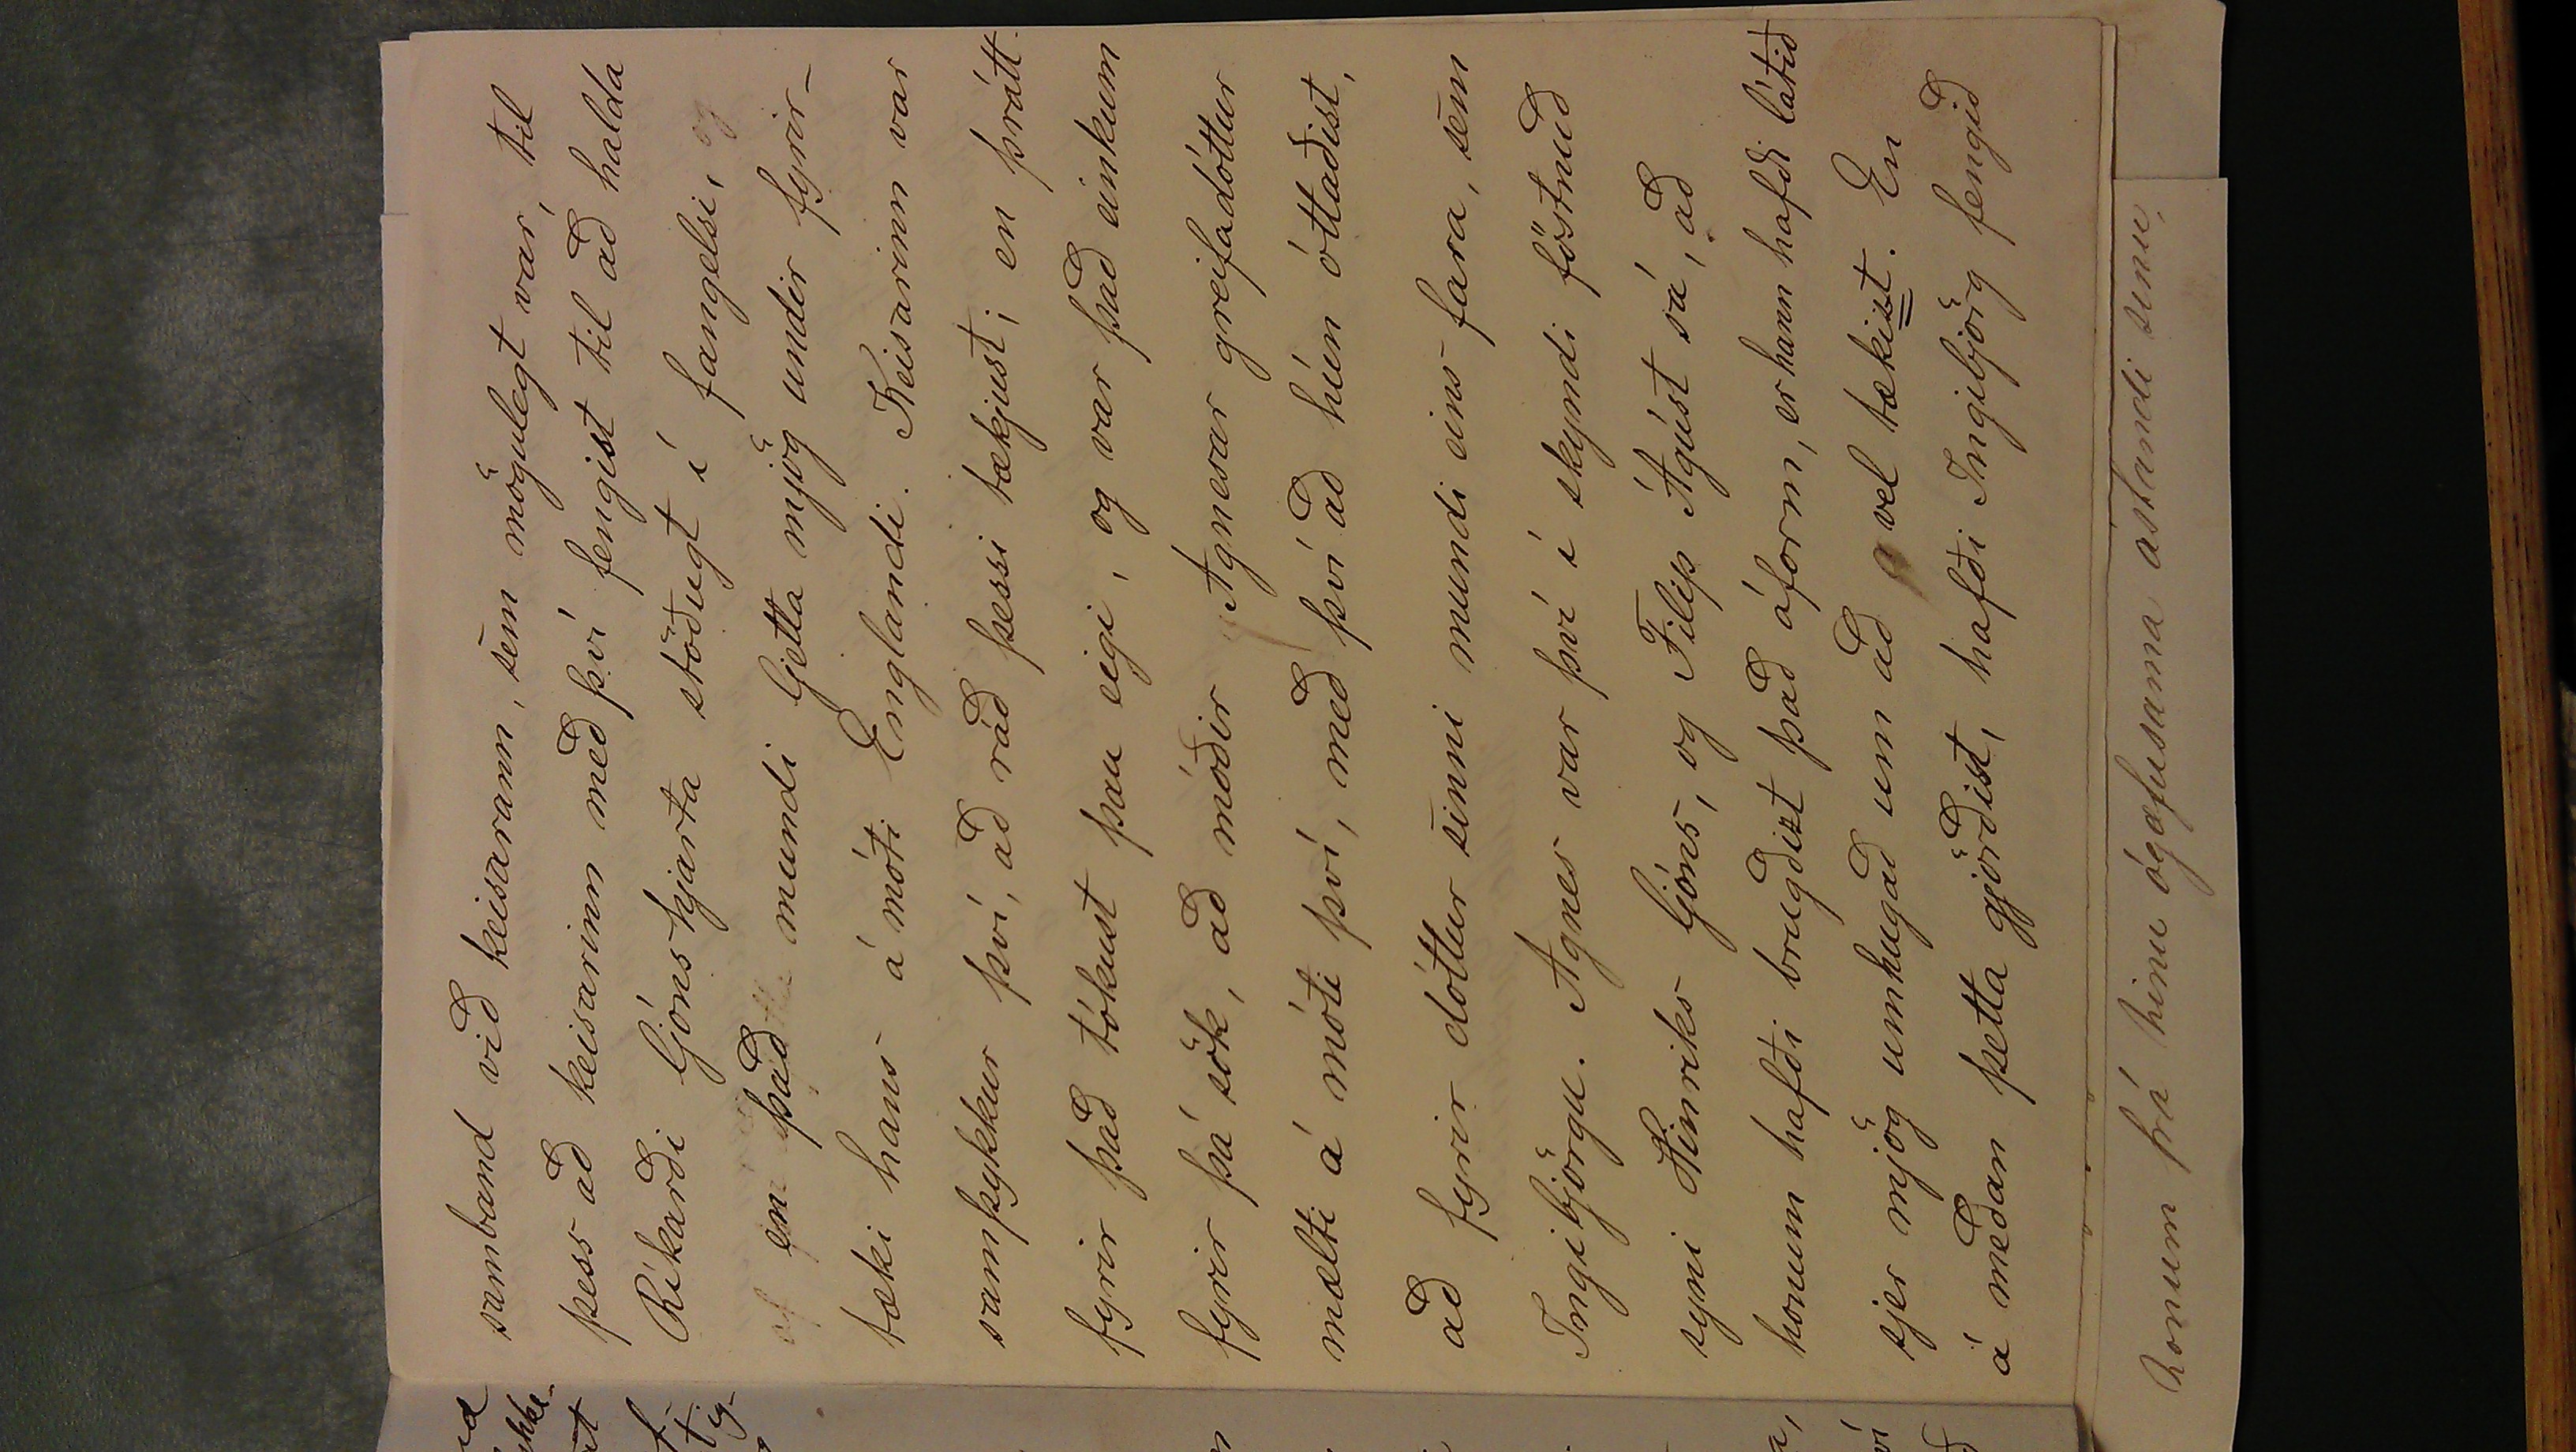 samband við keisarann, sem mögulegt var, til
þess að keisarinn með því fengist til að halda
Ríkarði Ljónshjarta stöðugt í fangelsi, og
en það mundi Ljetta mjög undir fyrir-
tæki hans á móti Englandi. Keisarinn var
samþykkur því, að ráð þessi tækjust; en þrátt
fyrir það tókust þau eigi, og var það einkum
fyrir þá sök, að móðir Agnesar greifadóttur
mælti á móti því, með því að hún óttaðist,
að fyrir dóttur sinni mundi eins fara, sem
Ingibjörgu. Agnes var því í skyndi föstnuð
syni Hinriks Ljóns, og Filip Ágúst sá, að
honum hafði brugðizt það áform, er hann hafði látið
sjer mjög umhugað um að vel tækist. En
á meðan þetta gjörðist, hafði Ingibjörg fengið
honum frá hinu ógæfusama ástandi sínu,